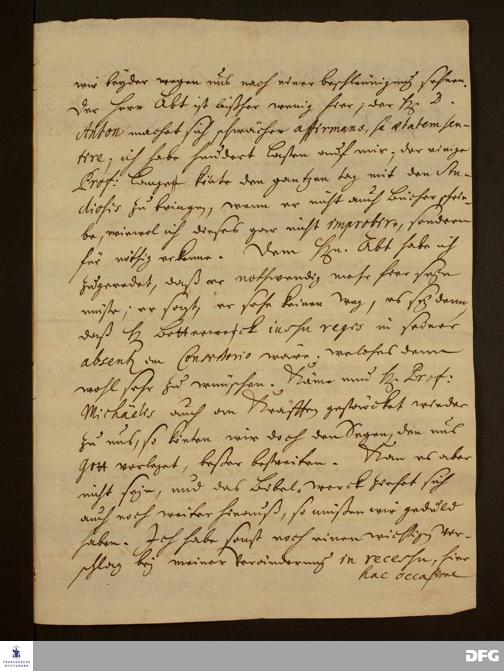 wir beyder wegen uns nach einer beschleunigung sehnen.
Der Herr Abt ist bißher wenig hier; der H. D.
Anton machet sich schwächer affirmans, se ætatem sen-
tire; ich habe hundert lasten auff mir; der einige
Prof: Lange könte den gantzen tag mit den Stu-
diosis zu bringen, wenn er nicht auch Bücher schrie-
be, wiewol ich dieses gar nicht improbire, sondern
für nöthig erkenne. Dem Hn. Abt habe ich
zugeredet, daß er nothwendig mehr hier seyn
müste; er sagt, er sehe keinen weg, es sey denn,
daß H Bötterweick iussu regis in seiner
absentz im Consistorio wäre: welches denn
wohl sehr zu wünschen. Käme nun H. Prof:
Michäelis auch an Kräfften gestärcket wieder
zu uns, so könten wir doch den Segen, den uns
Gott vorleget, besser bestreiten. Kan es aber
nicht seyn, und das Bibel-werck ziehet sich
auch noch weiter hinauß, so müßen wir geduld
haben. Ich habe sonst noch einen wichtigen vor-
schlag bey meiner Veränderung in recessu, hier
hac occasione
FRANCKESCHE
STIFTUNGEN
DFG